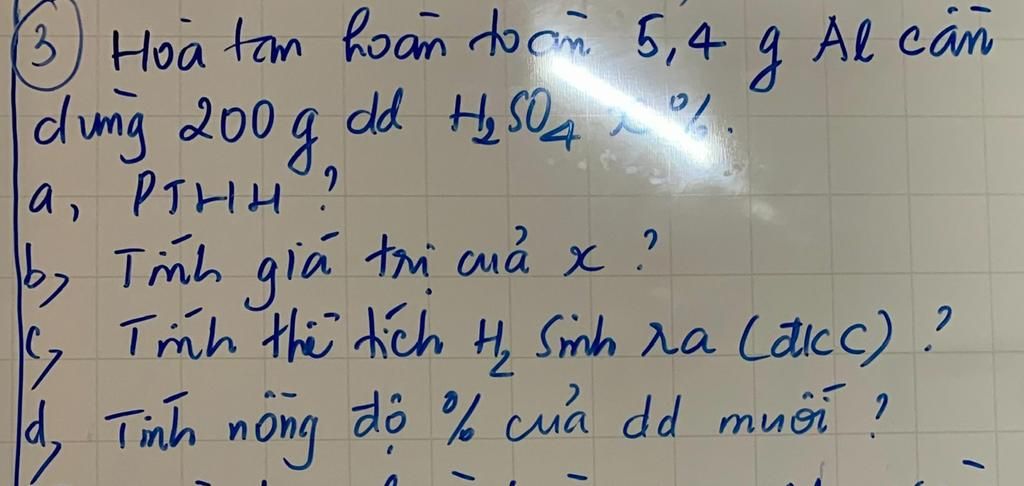 3 Hoà tan hoàn toàn 5,4 g Al cần
dùng 200g dd H₂SO₄ x%.
a, PTHH?
b, Tính giá trị của x?
c, Tính thể tích H₂ sinh ra (đkc)?
d, Tính nồng độ % của dd muối?